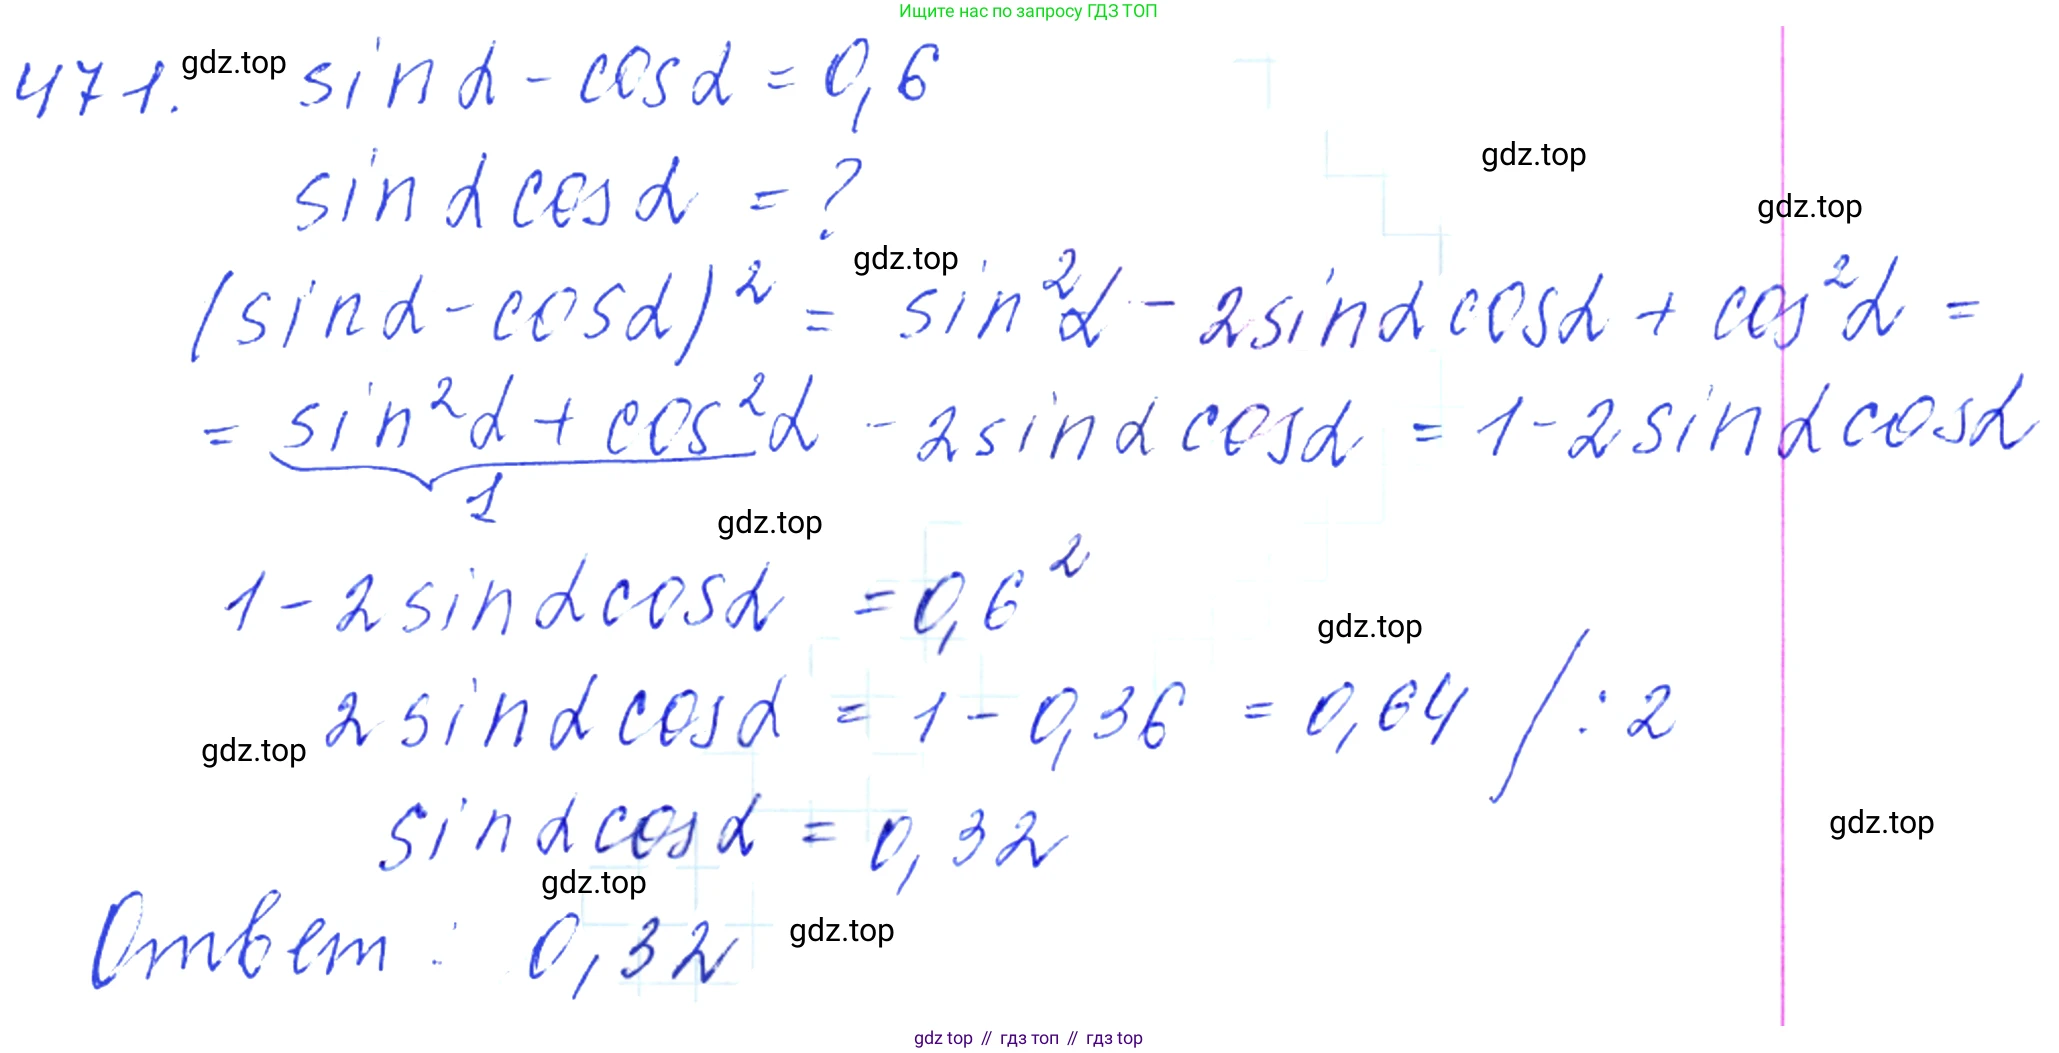 Ищите нас по запросу ГДЗ ТОП
471. gdz.top sin α - cos α = 0,6
sin α cos α = ?
gdz.top
gdz.top
gdz.top
(sin α - cos α)² = sin²α - 2 sin α cos α + cos²α =
= sin²α + cos²α - 2 sin α cos α = 1 - 2 sin α cos α
1
gdz.top
1 - 2 sin α cos α = 0,6²
gdz.top
2 sin α cos α = 1 - 0,36 = 0,64 / : 2
gdz.top
sin α cos α = 0,32
gdz.top
gdz.top
Ответ : 0,32 gdz.top
gdz top // гдз топ // гдз top